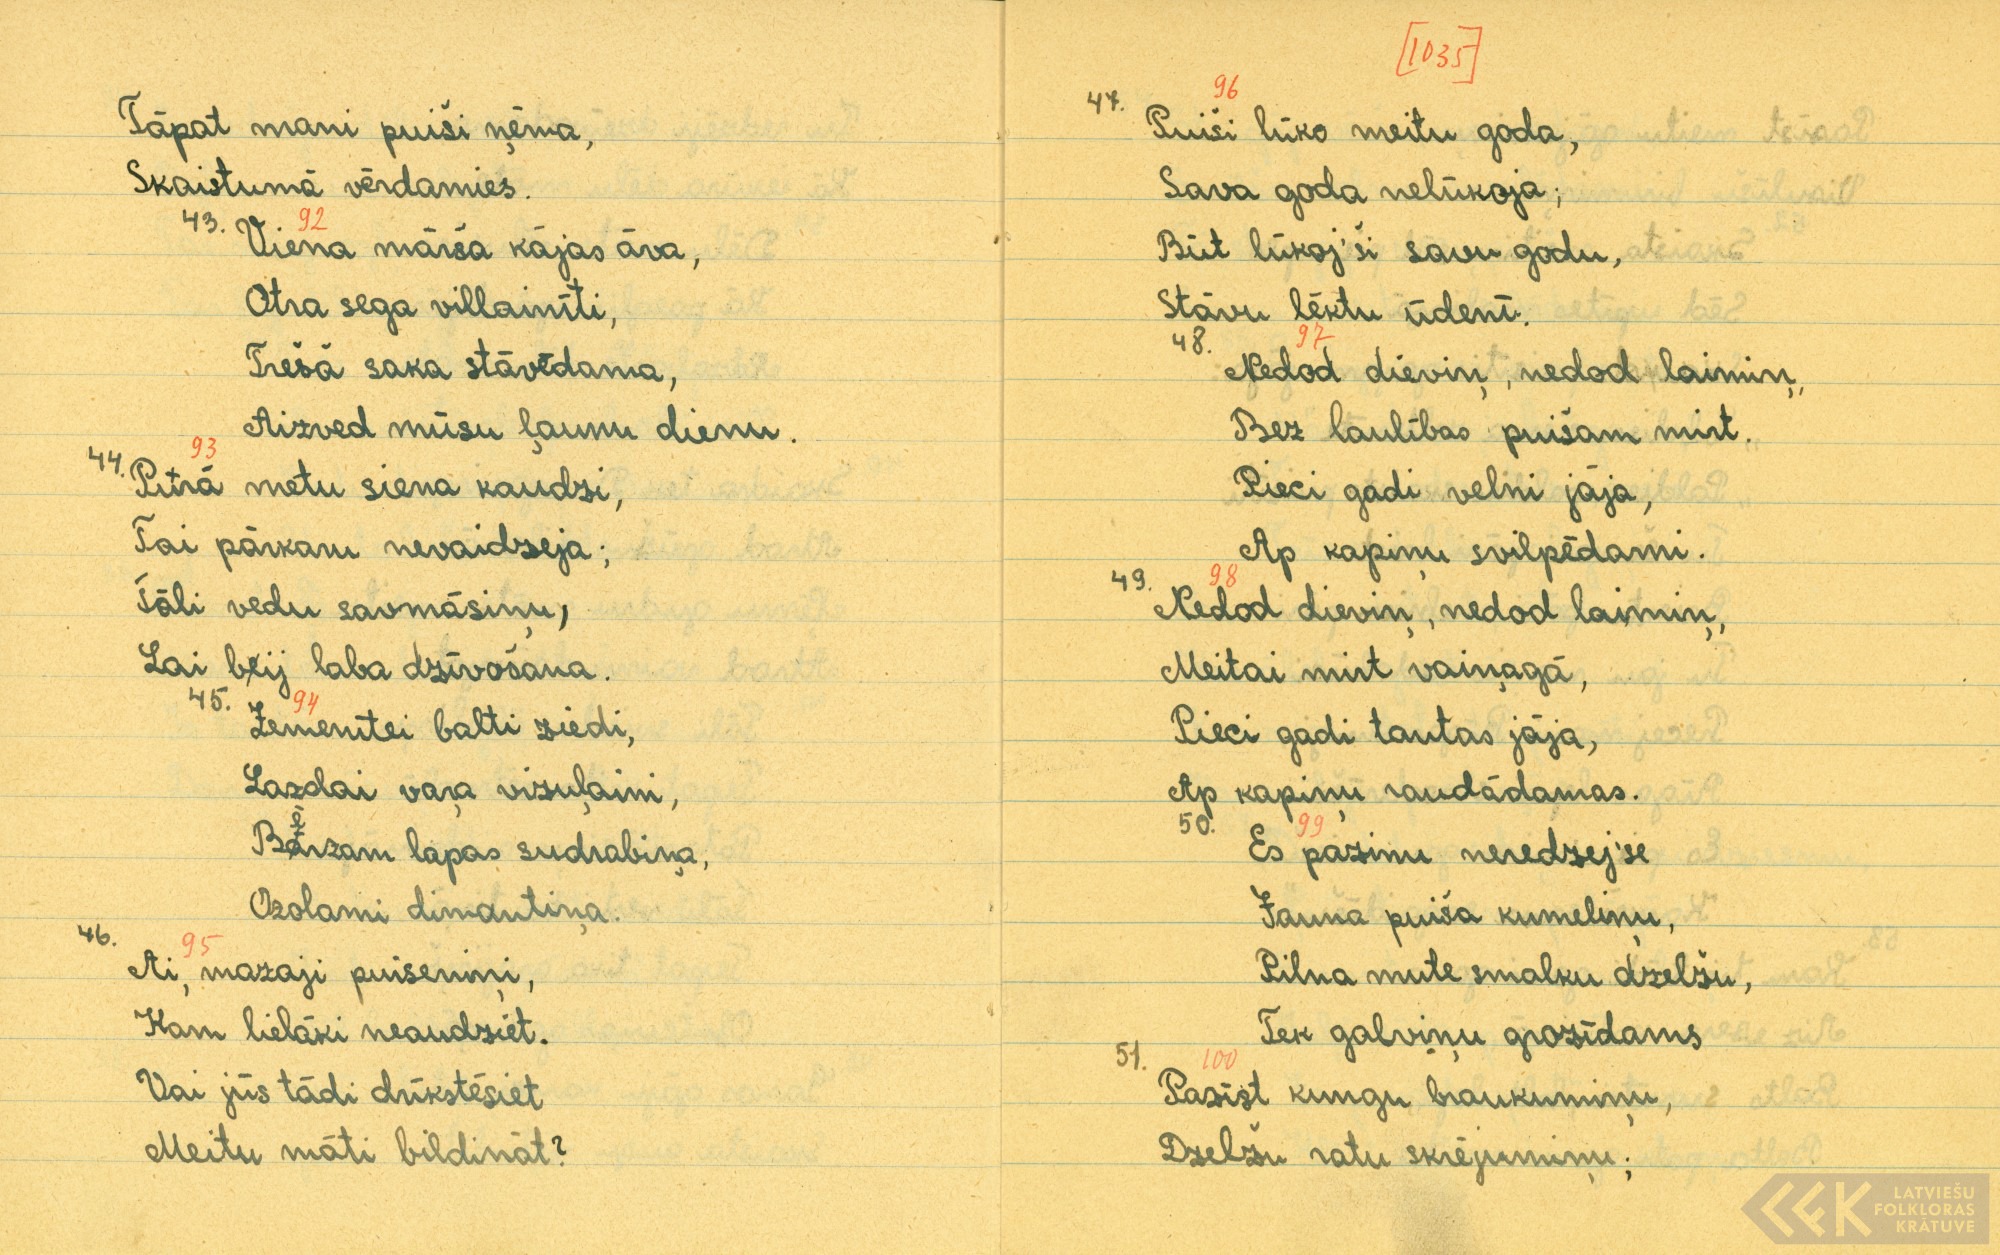 Tāpat mani puiši ņēma,
Skaistumā vērdamies.
43. 92
Viena mārša kājas āva,
Otra sega villainīti,
Trešā saka stāvēdama,
Aizved mūsu ļaunu dienu.
44. 93
Purā metu siena kaudzi,
Tai pārkaru nevaidzeja;
Tāli vedu savmāsiņu,
Lai bij laba dzīvošana.
45. 94
Zemenītei balti ziedi,
Lazdai vaŗa vizuļaini,
Bērzam lapas sudrabiņa,
Ozolami dimantiņa.
46. 95
Ai, mazaji puiseniņi,
Kam lielāki neaudziet.
Vai jūs tādi drīkstēsiet
Meitu māti bildināt?
[1035]
47. 96
Puiši lūko meitu goda,
Sava goda nelūkoja;
Būt lūkoj'ši savu godu,
Stāvu lēktu ūdenī.
48. 97
Nedod dieviņ, nedod laimiņ,
Bez laulības puišam mirt.
Pieci gadi velni jāja,
Ap kapiņu svilpēdami.
49. 98
Nedod dieviņ, nedod laimiņ,
Meitai mirt vaiņagā,
Pieci gadi tautas jāja,
Ap kapiņu raudādamas.
50. 99
Es pazinu neredzej'se
Jauna puiša kumeliņu,
Pilna mute smalku dzelžu,
Tek galviņu grozīdams
51. 100
Pazīst kungu braukumiņu,
Dzelžu ratu skrējumiņu;
LATVIEŠU
FOLKLORAS
KRĀTUVE